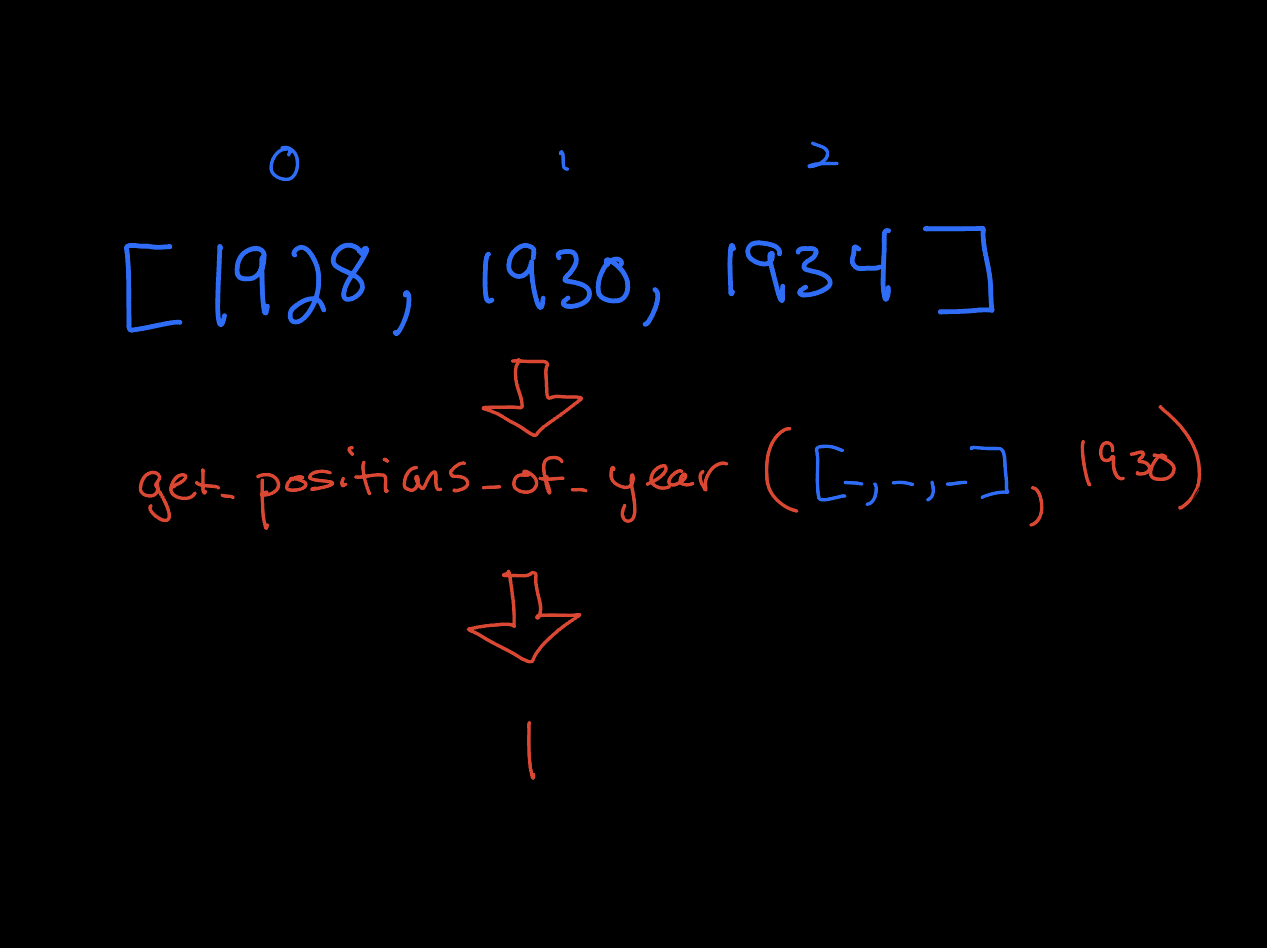 0 1 2
[1928, 1930, 1934]
get_positions_of_year([_,_,_], 1930)
1